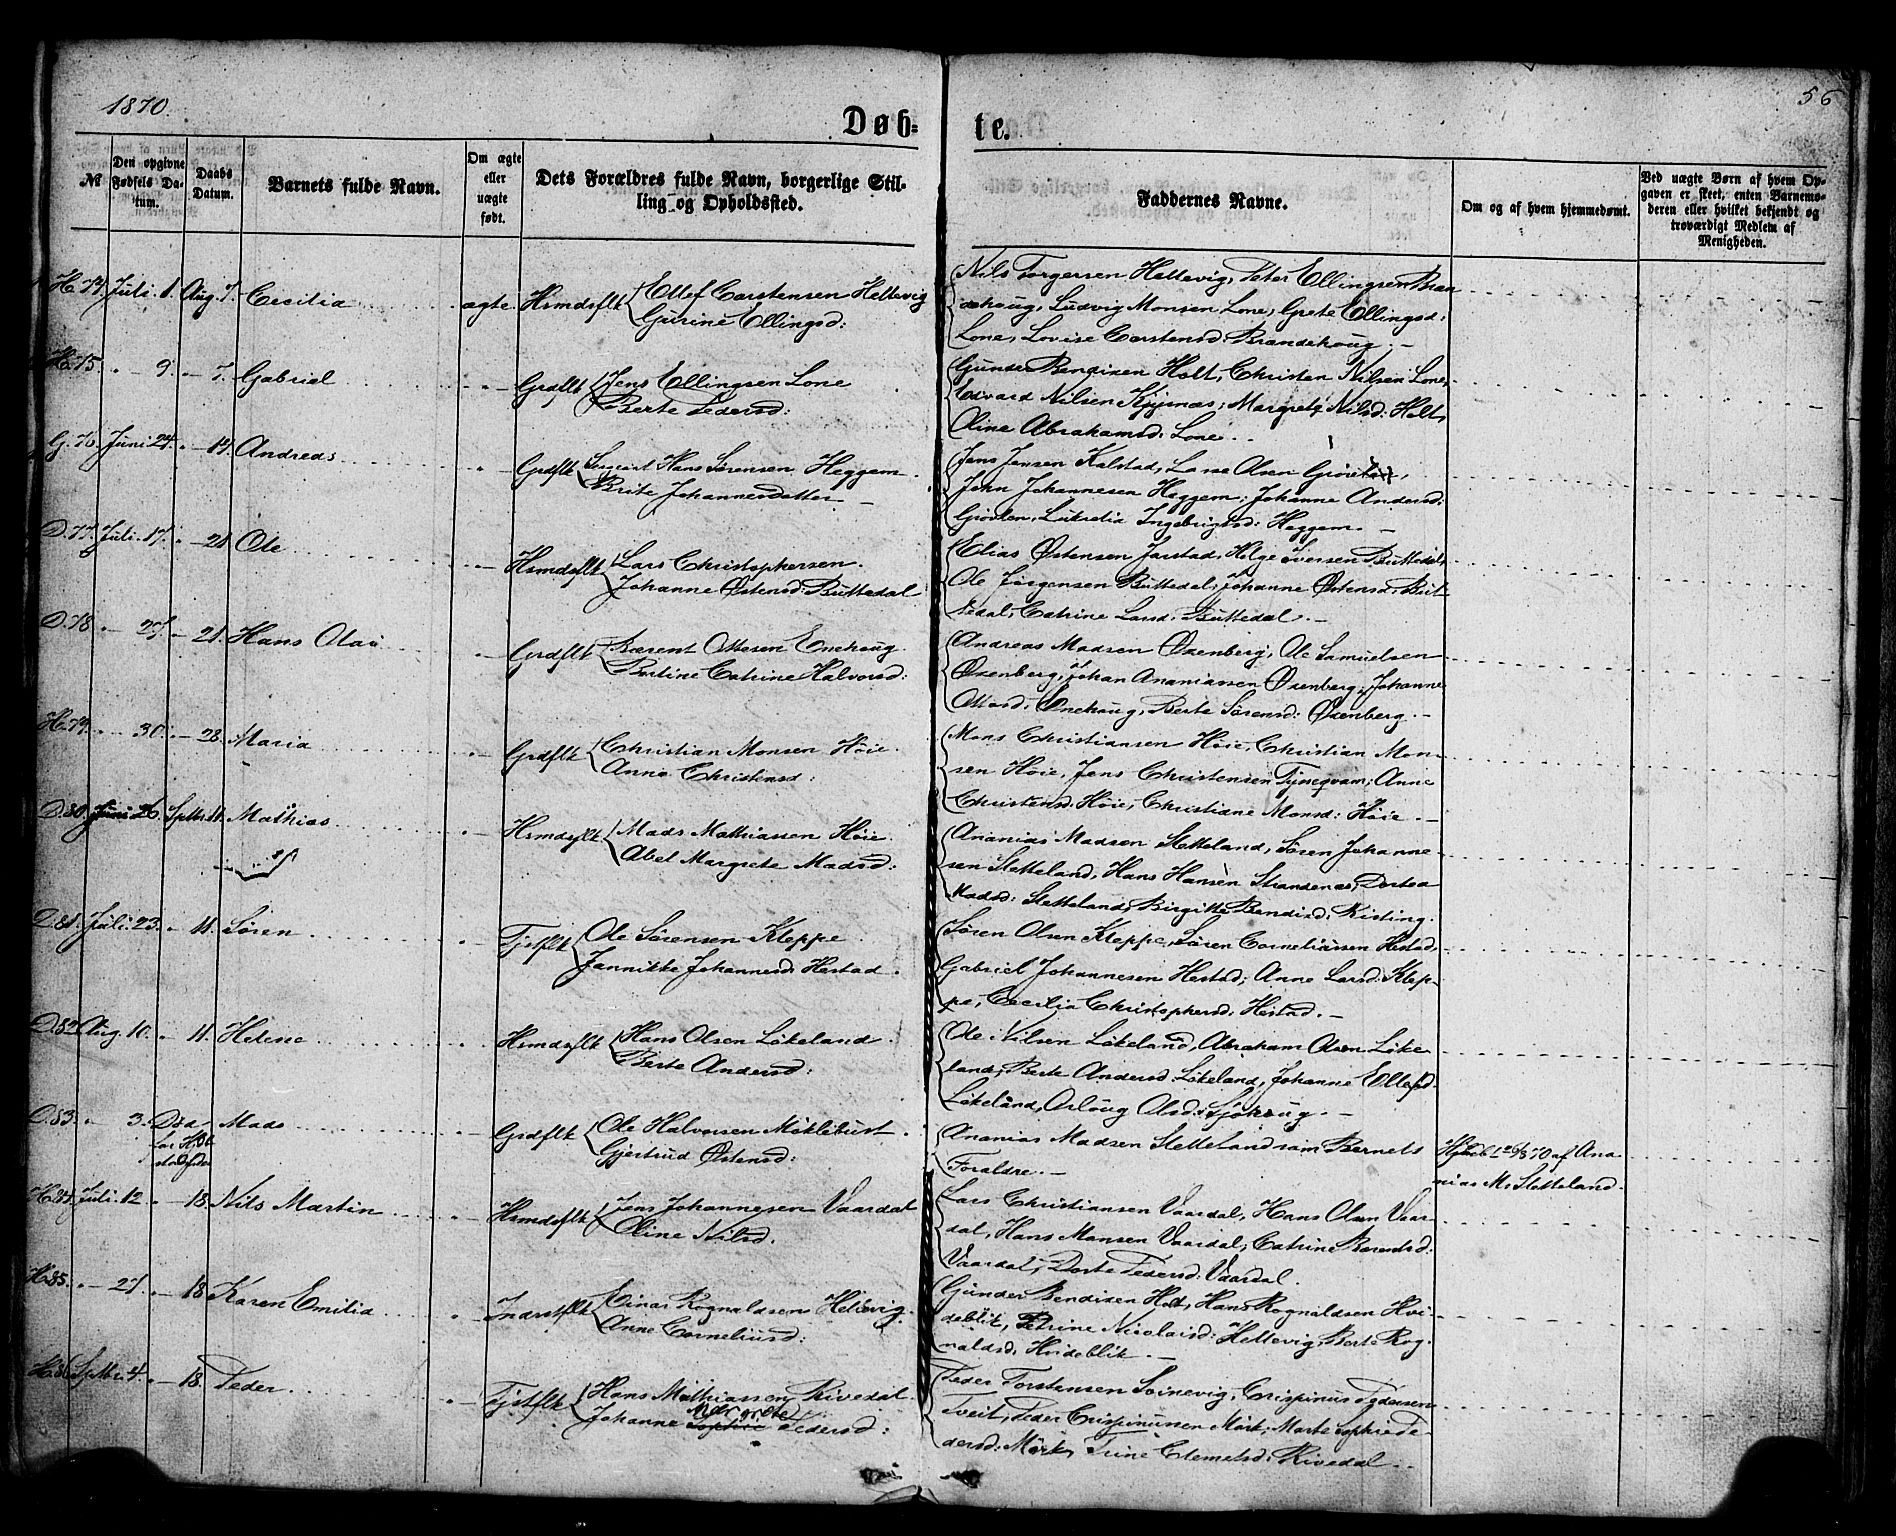 1870.
56
Døb-
te.
№
Den opgivne Fødsels Datum.
Daabs Datum.
Barnets fulde Navn.
Om ægte eller uægte født.
Dets Forældres fulde Navn, borgerlige Stilling og Opholdssted.
Faddernes Navne.
Om og af hvem hjemmedømt.
Ved uægte Børn af hvem Opgaven er skeet, enten Barnemoderen eller hvilket bekjendt og troværdigt Medlem af Menigheden.
H. 74 Juli 1. Aug. 7. Cecilia ægte Hsmdsflk Ellef Carstensen Hellevig
Gurine Ellingsd:
Nils Torgersen Hellevig, Peter Ellingsen Bran
dehoug, Ludvig Monsen Lone, Grete Ellingsd:
Lone, Lovise Carstensd: Brandehoug. –
H. 75. " – 9. " – 7. Gabriel " – Grdflk Jens Ellingsen Lone
Berte Pedersd:
Gunder Bendixen Holt, Christen Nilsen Lone,
Edvard Nilsen Kjypnæs, Margrete Nilsd: Holt,
Oline Abrahamsd: Lone.
G. 76. Juni 24. " – 14. Andreas " – Grdflk Sergeant Hans Sørensen Heggem
Brite Johannesdatter –
Jens Jensen Kalstad, Lasse Olsen
John Johannesen Heggem, Johanne Andersd:
Grovlen, Lukretia Ingebrigtsd: Heggem. –
D. 77. Juli 17. " – 21. Ole " – Hsmdsflk Lars Christophersen
Johanne Østensd: Buttedal
Elias Østensen Jarstad, Helge Iversen Buttedal,
Ole Jørgensen Buttedal, Johanne Østensd: But
tedal, Catrine Larsd: Buttedal. –
D. 78 " – 27. – 21. Hans Olai " – Grdflk Bærent Ottesen Enehoug
Bertine Catrine Halvorsd:
Andreas Madsen Øxenberg, Ole Samuelsen
Øxenberg, Johan Ananiassen Øxenberg, Johanne
Ottesd: Enehoug, Berte Sørensd: Øxenberg. –
H. 79. " – 30. " – 28. Maria " – Grdflk Christian Monsen Høie
Anne Christensd:
Mons Christiansen Høie, Christian Mon-
sen Høie, Jens Christensen Tyneqvam, Anne
Christensd: Høie, Christiane Monsd: Høie. –
D. 80. Juni 26. Sptbr. 11. Mathias " – Hsmdsflk Mads Mathiassen Høie
Abel Margrete Madsd:
Ananias Madsen Sletteland, Søren Johanne-
sen Sletteland, Hans Hansen Strandenæs, Dortea
Madsd: Sletteland, Birgitte Bendixd: Kisting.
D. 81. Juli. 23. " 11. Søren " – Tjstflk Ole Sørensen Kleppe
Jannikke Johannesd: Hestad.
Søren Olsen Kleppe, Søren Corneliussen Hestad,
Gabriel Johannesen Hestad, Anne Larsd: Klep-
pe, Cecilia Christophersd: Hestad. –
D. 82 Aug. 10. " 11. Helene " Hsmdsflk Hans Olsen Løkeland
Berte Andersd:
Ole Nilsen Løkeland, Abraham Olsen Løke-
land, Berte Andersd: Løkeland, Johanne Ellefsd:
Løkeland, Asloug Olsd: –
D. 83. " – 3. Mads " – Grdflk Ole Halvorsen Møklebust
Gjertrud Østensd:
Ananias Madsen Sletteland samt Barnets
Forældre. –
af Ana
nias M. Sletteland.
H. 84. Juli. 12 " – 18. Nils Martin " – Hsmdsflk Jens Johannesen Vaardal
Oline Nilsd.
Lars Christiansen Vaardal, Hans Olsen Vaar-
dal, Hans Monsen Vaardal, Catrine Berentsd:
Vaardal, Dorte Pedersd: Vaardal.
H. 85. " – 27. " – 18. Karen Emilia " Indrstflk Einar Rognaldsen Hellevig.
Anne Corneliusd:
Gunder Bendixen Holt, Hans Rognaldsen Hvi-
deblik, Petrine Nicolaisd: Hellevig, Berte Rog-
naldsd: Hvideblik. –
H. 86 Sptbr. 4. " – 18. Peder " – Tjstflk Hans Mathiassen Rivedal
Margrete
Johanne Sophie Pedersd:
Peder Torstensen Soinevig, Crispinus Pedersen
Tveit, Peder Crispinussen Mørk, Marte Sophie Pe-
dersd: Mørk, Trine Clemetsd: Rivedal.